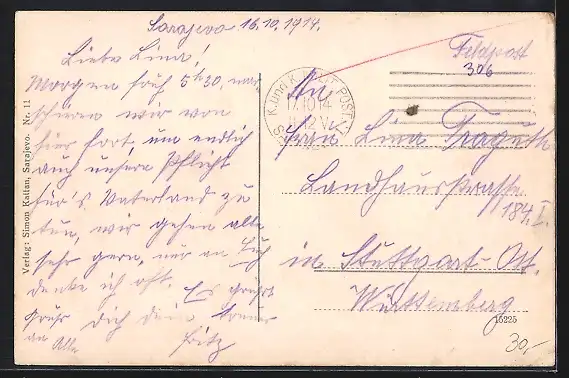 Sarajevo 16.10.1914.
Liebe Lina!
Morgen früh 5h30, mar-
schieren wir von
hier fort, um endlich
auch unsere Pflicht
für's Vaterland zu
tun, wir gehen alle
sehr gern, nur an Euch
denke ich oft. Es grüsst
Dich dein treuer
Fritz
Grüße
an Alle
Feldpost
306
K. und K.
POST
17.10.14
An
Frau Lina
Landhausstrasse
184. I.
in Stuttgart-Ost.
Württemberg
Verlag: Simon Kattan, Sarajevo. Nr. 11
15225
30,-